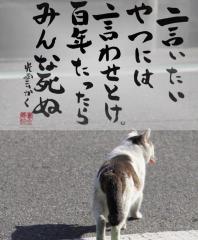 二言いたい
やつには、
二言わせとけ。
百年たったら
みんな死ぬ